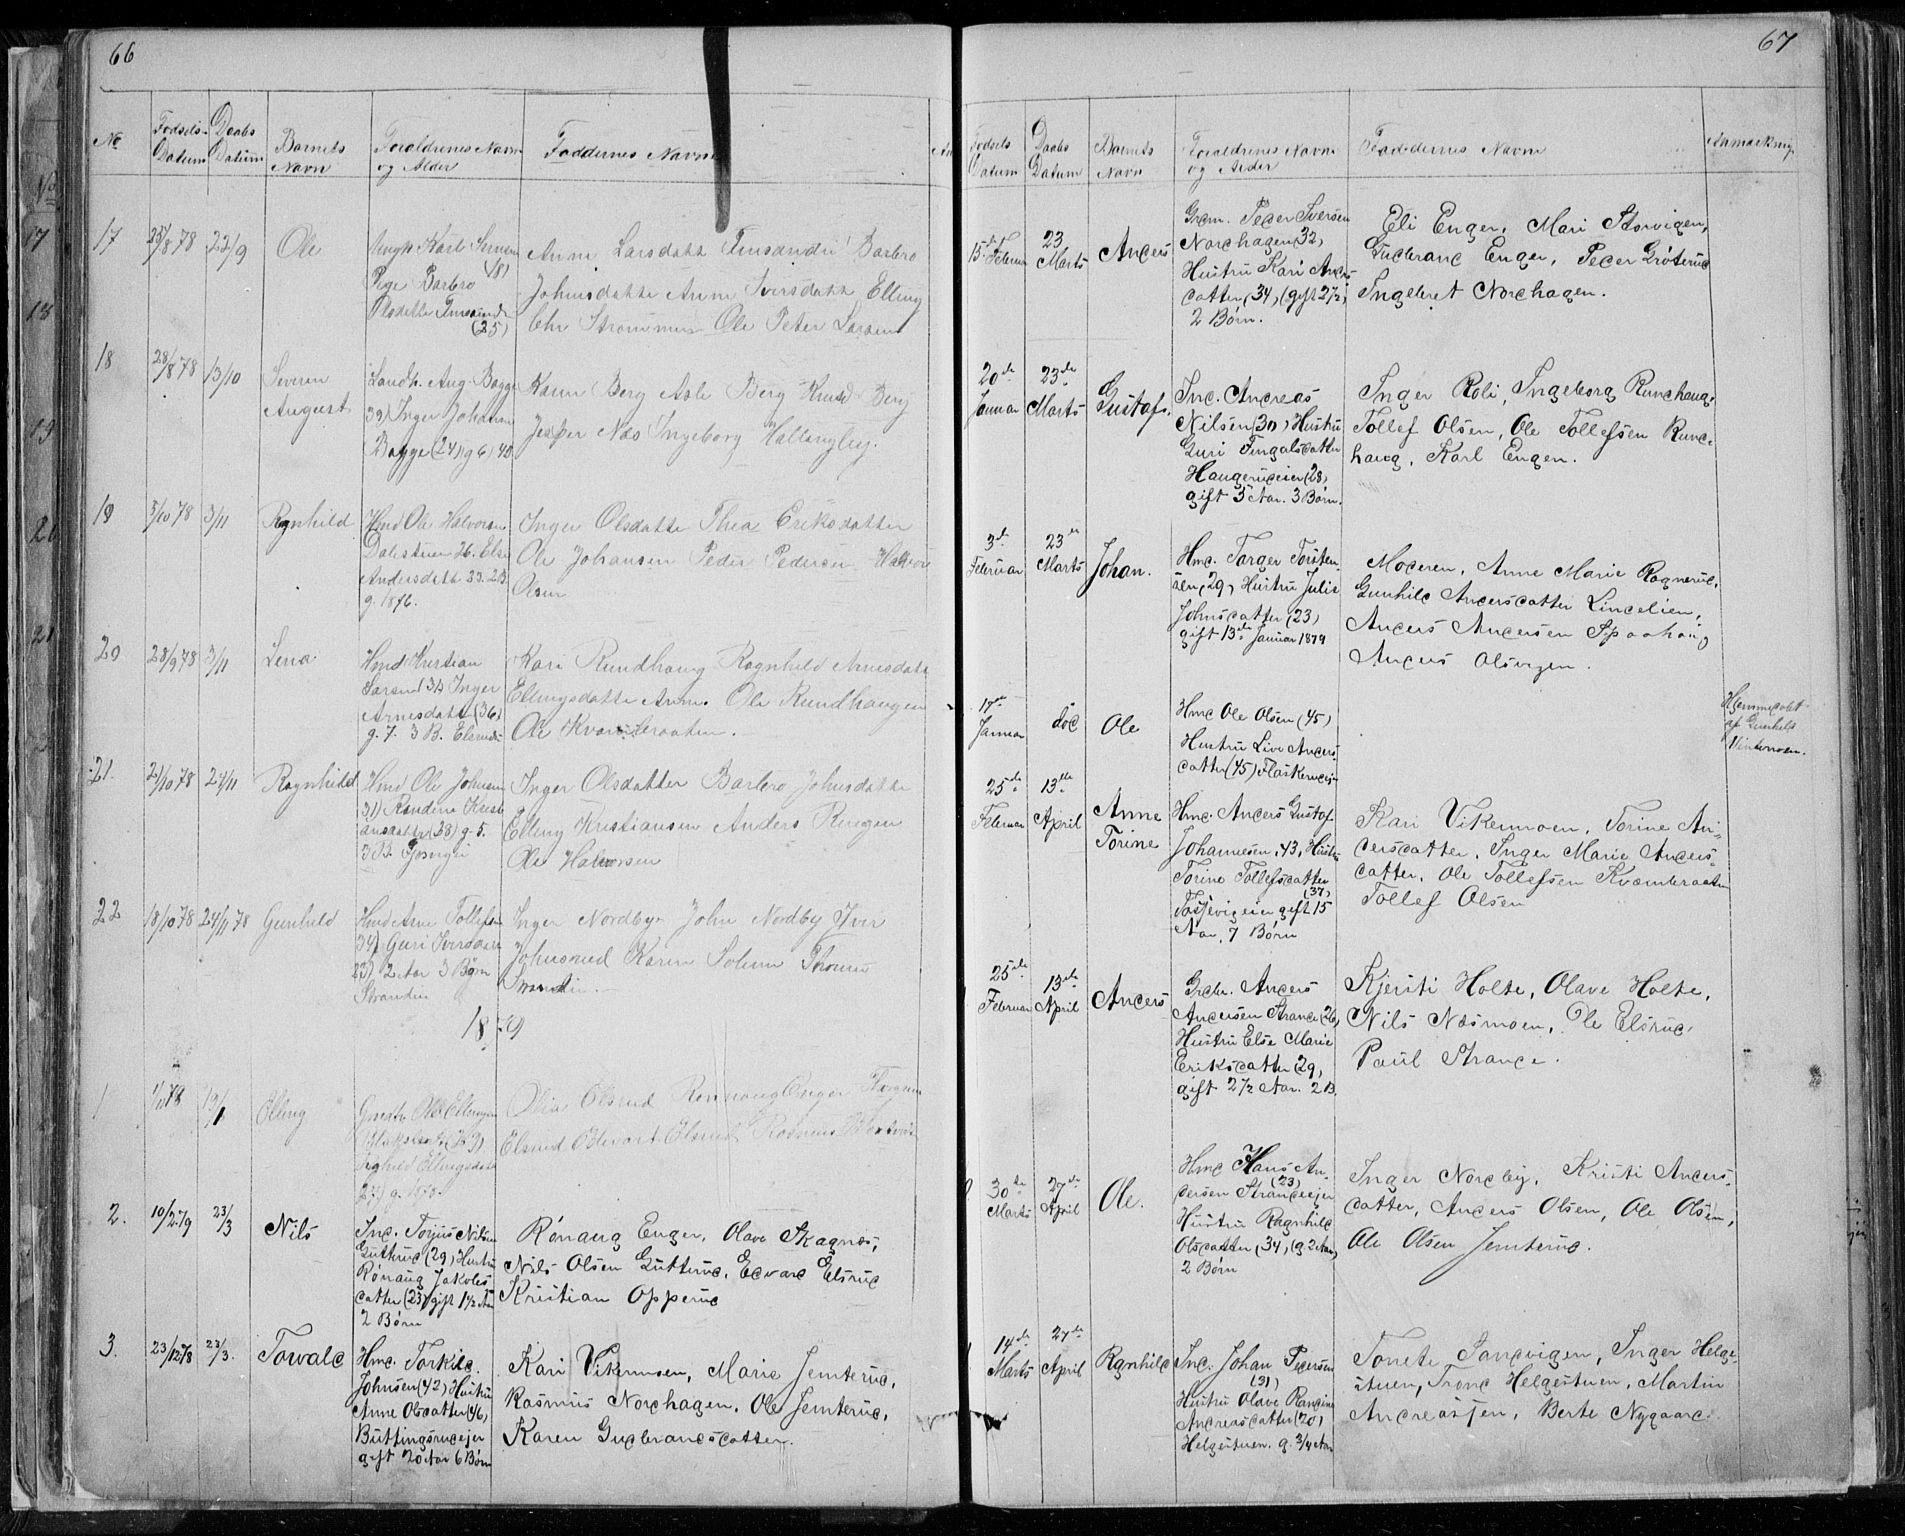 66
No
Fødsels-
Datum
Daabs
Datum
Barnets
Navn
Foraldrenes Navn
og Alder
Faddernes Navne
17
25/8 78
22/9
Ole
Ungk Karl
(18)
Pige Barbro
Olsdatte
(25)
Anne Larsdatt Barbro
Johnsdatte Anne Iversdatt Elling
Chr Strømmen Ole Peter Larsen
18
28/8 78
13/10
Severin
August
Landh. Aug. Bagge
32) Inger Johanne
Bagge (24) g 6) 40
Karen Berg Asle Berg Knud Berg
Jesper Næs Ingeborg Hallingby.
19
5/10 78
3/11
Ragnhild
Hmd Ole Halvorsen
26. Else
Andersdatt 23. 2 B.
g. 1876.
Inger Olsdatte Thea Eriksdatter
Ole Johansen Peder Pedersen Halvor
Olsen
20
28/9 78
3/11
Lena
Hmd Kristian
Larsen 31) Inger
Arnesdatt (36)
g. 7. 3 B.
Kari Rundhaug Ragnhild Arnesdatt
Ellingsdatte Anne. Ole Rundhaugen
Ole Kvernbraaten.
21.
21/10 78
24/11
Ragnhild
Hmd Ole Johnsen
31) Randine Kristi
ansdatte (28) g. 5.
3 B.
Inger Olsdatter Barbro Johnsdatte
Elling Kristiansen Anders Ringen
Ole Halvorsen
22
18/10 78
24/11 78
Gunhild
Hmd Arne Tollefsen
34) Guri Iversdatt
23) 2 Aar 3 Børn
Stranden
Inger Nordby John Nordby Iver
Johnsrud Karen Solum Thomas
Stranden.
1879
1
1/1 79
19/1
Elling
Ole Ellingsen
Sigrid Ellingsdatt
Olia Olsrud Rønnaug Enger
Elsrud Edvart Elsrud Rasmus
2.
10/2 79
23/3
Nils
Ind. Torjus Nilsen
Gutterud (29) Hustru
Rønaug Jakobs
datter (23) gift 1½ Aar
2 Børn
Rønaug Enger, Olava Skagnæs,
Nils Olsen Gutterud, Edvard Elsrud
Kristian Opperud
3.
23/12 78
23/3.
Torvald
Hmd. Torkild
Johnsen (42) Hustru
Anne Olsdatter (46)
Buttingsrudejer
gift 20 Aar 6 Børn
Kari Vikermoen, Marie Jemterud,
Rasmus Nordhagen, Ole Jemterud,
Karen Gudbrandsdatter.
67
Fødsels
Datum
Daabs
Datum
Barnets
Navn
Foraldrenes Navn
og Alder
Faddernes Navne
Anmærkning
15de Februar
23
Marts
Anders
Grdm. Peder Iversen
Nordhagen (32)
Hustru Kari Anders
datter (34) (gift 2½)
2 Børn.
Eli Enger, Mari Storvigen,
Gudbrand Enger, Peder Grøterud
Ingebret Nordhagen.
20de
Januar
23de
Marts
Gustaf.
Ind. Andreas
Nilsen (30) Hustru
Guri Fingalsdatter
Haugerudeier (28)
gift 3 Aar. 3 Børn.
Inger Roli, Ingeborg Rundhaug.
Tollef Olsen, Ole Tollefsen Rund-
haug, Karl Engen.
3de
Februar
23de
Marts
Johan.
Hmd. Torger Torsten
sen (29) Hustru Julie
Johnsdatter (23)
gift 13de Januar 1879
Moderen, Anne Marie Rognerud.
Gunhild Andersdatter Lindelien,
Anders Andersen Spaahaug
Anders Olsvigen.
17de
Januar
do
Ole
Hmd Ole Olsen (45)
Hustru Live Anders-
datter (45) Flaskerudejer
Hjemmedøbt
af Gunhild
25de
Februar
13de
April
Anne
Torine
Hmd. Anders Gustaf
Johannesen, 43, Hustru
Torine Tollefsdatter
(37)
gift 15
Aar, 7 Børn
Kari Vikermoen, Torine An-
dersdatter, Inger Marie Anders-
datter, Ole Tollefsen Kvernbraaten
Tollef Olsen
25de
Februar
13de
April
Anders
Grdbr. Anders
Andersen Strande (26)
Hustru Else Marie
Eriksdatter (29)
gift 2½ Aar. 2 B.
Kjersti Holte, Olave Holte,
Nils Næsmoen, Ole Elsrud
Paul Strande.
30te
Marts
27de
April
Ole.
Hmd Hans An-
(23)
dersen Strandeejer
Hustru Ragnhild
Olsdatter (34) (g 2 Aar)
2 Børn
Inger Nordby, Kristi Anders-
datter, Anders Olsen, Ole Olsen,
Ole Olsen Jemterud.
14de
Marts
27de
April
Ragnhild
Ind. Johan Pedersen
(31)
Hustru Olave Randine
Andreasdatter (20)
Helgestuen. g. 3/4 Aar
Tonete Sandvigen, Inger Helge-
stuen, Trond Helgestuen, Martin
Andreassen, Berte Nygaard